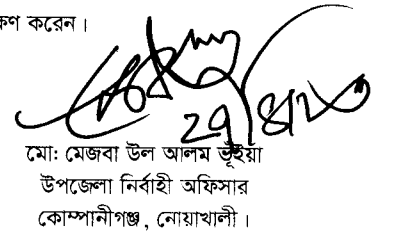 ক্ষণ করেন।
মো: মেজবা উল আলম ভূঁইয়া
উপজেলা নির্বাহী অফিসার
কোম্পানীগঞ্জ, নোয়াখালী।